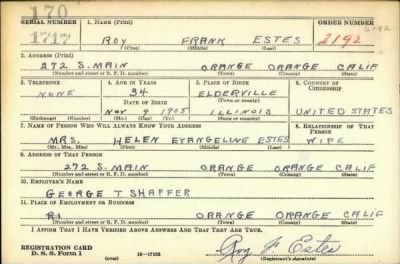 170
SERIAL NUMBER 1. NAME (Print) ORDER NUMBER
1717 ROY FRANK ESTES 2192 2192
(First) (Middle) (Last)
2. ADDRESS (Print)
272 S. MAIN ORANGE ORANGE CALIF
(Number and street or R. F. D. number) (Town) (County) (State)
3. TELEPHONE 4. AGE IN YEARS 5. PLACE OF BIRTH 6. COUNTRY OF CITIZENSHIP
NONE 34 ELDERVILLE
DATE OF BIRTH (Town or county)
NOV 9 1905 ILLINOIS UNITED STATES
(Exchange) (Number) (Mo.) (Day) (Yr.) (State or country)
7. NAME OF PERSON WHO WILL ALWAYS KNOW YOUR ADDRESS 8. RELATIONSHIP OF THAT PERSON
MRS. HELEN EVANGELINE ESTES WIFE
(Mr., Mrs., Miss) (First) (Middle) (Last)
9. ADDRESS OF THAT PERSON
272 S. MAIN ORANGE ORANGE CALIF
(Number and street or R. F. D. number) (Town) (County) (State)
10. EMPLOYER'S NAME
GEORGE T SHAFFER
11. PLACE OF EMPLOYMENT OR BUSINESS
R1 ORANGE ORANGE CALIF
(Number and street or R. F. D. number) (Town) (County) (State)
I AFFIRM THAT I HAVE VERIFIED ABOVE ANSWERS AND THAT THEY ARE TRUE.
REGISTRATION CARD
D. S. S. Form 1 16—17105 Roy F Estes
(Registrant's signature)